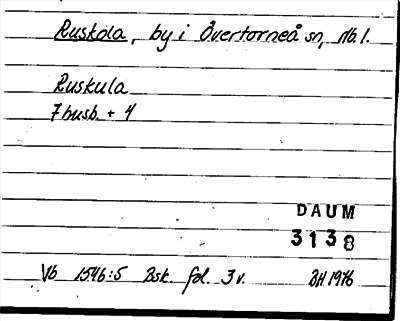 Ruskola, by i Övertorneå sn, Nb.l.
Ruskula
7 husb. + 4
DAUM
3138
Vb 1546:5 Bsk. fol. 3 v. BH 1976